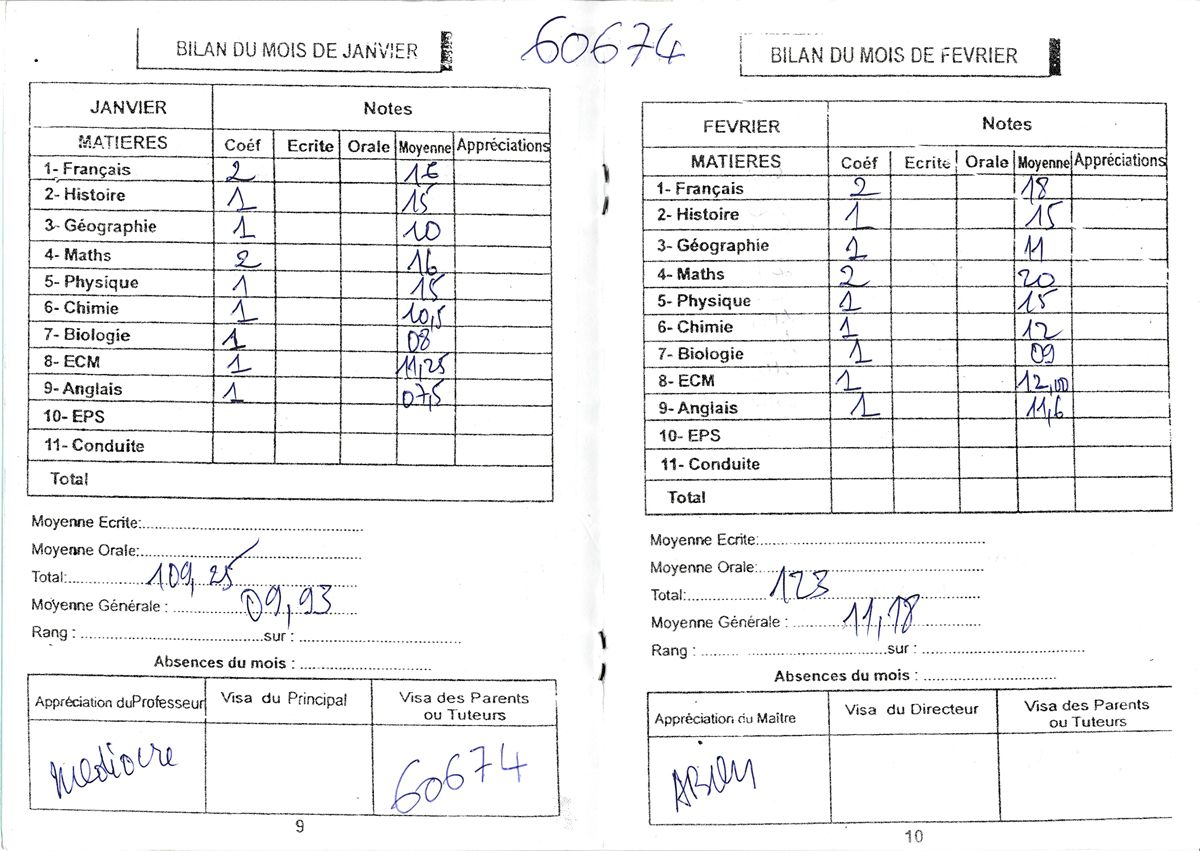 BILAN DU MOIS DE JANVIER
60674
JANVIER Notes
MATIERES Coéf Ecrite Orale Moyenne Appréciations
1- Français 2 16
2- Histoire 1 15
3- Géographie 1 10
4- Maths 2 16
5- Physique 1 15
6- Chimie 1 10,5
7- Biologie 1 08
8- ECM 1 11,25
9- Anglais 1 07,5
10- EPS
11- Conduite
Total
Moyenne Ecrite:
Moyenne Orale:
Total: 109,25
Moyenne Générale : 09,93
Rang : sur :
Absences du mois :
Appréciation du Professeur Visa du Principal Visa des Parents
ou Tuteurs
Mediocre 60674
9
BILAN DU MOIS DE FEVRIER
FEVRIER Notes
MATIERES Coéf Ecrite Orale Moyenne Appréciations
1- Français 2 18
2- Histoire 1 15
3- Géographie 1 11
4- Maths 2 20
5- Physique 1 15
6- Chimie 1 12
7- Biologie 1 09
8- ECM 1 12,00
9- Anglais 1 11,6
10- EPS
11- Conduite
Total
Moyenne Ecrite:
Moyenne Orale:
Total: 123
Moyenne Générale : 11,18
Rang : sur :
Absences du mois :
Appréciation du Maître Visa du Directeur Visa des Parents
ou Tuteurs
ABien
10